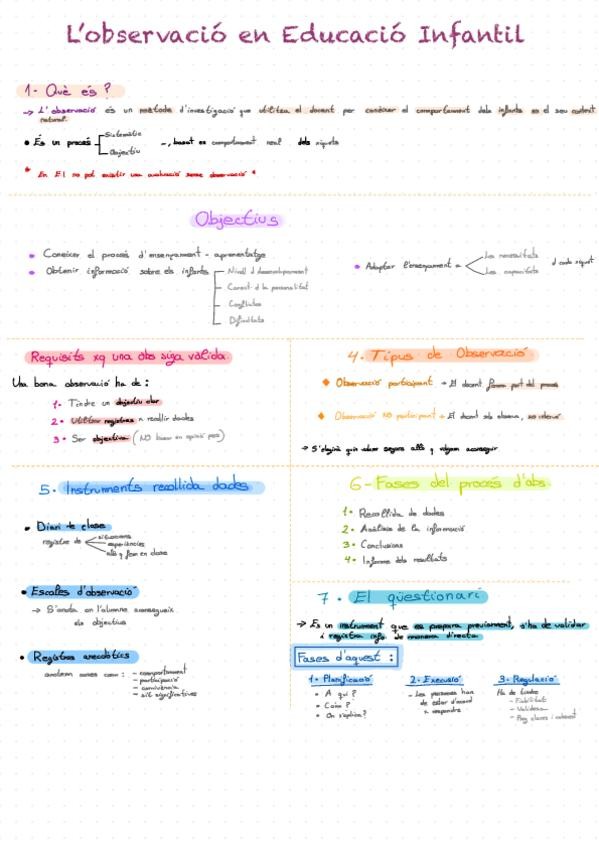 L'observació en Educació Infantil
1- Què és?
→ L'observació és un mètode d'investigació que utilitza el docent per conèixer el comportament dels infants en el seu context
natural.
• És un procés Sistemàtic
Objectiu
→, basat en comportament real dels xiquets
* En E.I no pot existir una avaluació sense observació *
Objectius
• Coneixer el procés d'ensenyament - aprenentatge
• Obtenir informació sobre els infants Nivell d desenvolupament
Caract. d la personalitat
Conflictes
Dificultats
• Adaptar l'ensenyament a Les necessitats
Les capacitats
d cada xiquet
Requisits xq una obs siga vàlida
Una bona observació ha de:
1- Tindre un objectiu clar
2- Utilitzar registres x recollir dades
3- Ser objectiva (NO basar en opinió pers)
4. Tipus de Observació
◆ Observació participant → El docent forma part del procés
◆ Observació NO participant → El docent sols observa, no intervé
→ S'elegirà quin usar segons allò q vulgam aconseguir
5. Instruments recollida dades
• Diari de classe
registre de situacions
experiències
allò q fem en classe
• Escales d'observació
→ S'anota on l'alumne aconsegueix
els objectius
• Registres anecdòtics
anotem coses com: - comportament
- participació
- convivència
- sit significatives
6- Fases del procés d'obs
1- Recollida de dades
2- Anàlisis de la informació
3- Conclusions
4- Informe dels resultats
7. El qüestionari
→ És un instrument que es prepara previament, s'ha de validar
i registra info. de manera directa
Fases d'aquest:
1- Planificació
• A qui?
• Com?
• On s'aplica?
2- Execució
- Les persones han
de estar d'acord
a respondre
3- Regulació
Ha de tindre
- Fiabilitat
- Validesa